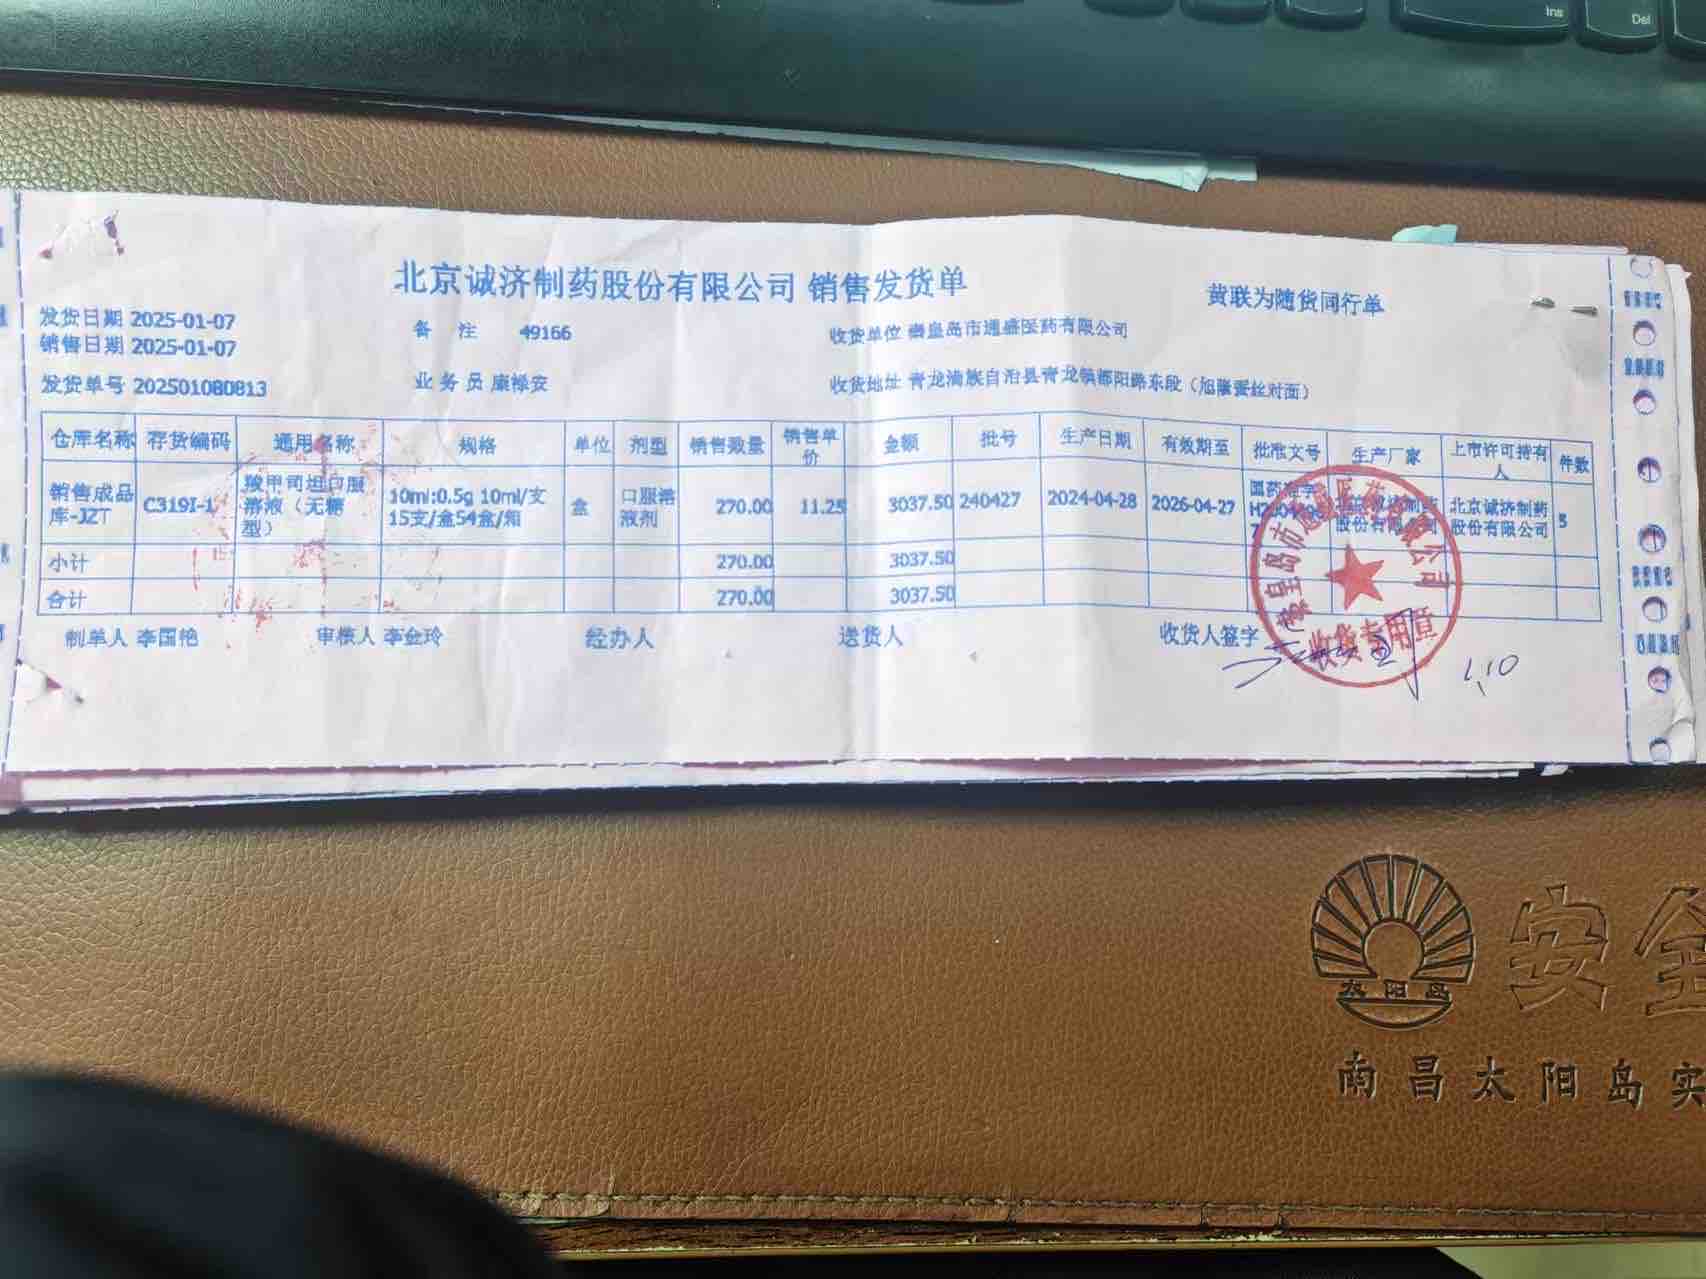 Ins
Del
北京诚济制药股份有限公司 销售发货单
黄联为随货同行单
发货日期 2025-01-07
备 注 49166
收货单位 秦皇岛市通盛医药有限公司
销售日期 2025-01-07
发货单号 202501080813
业务员 康禄安
收货地址 青龙满族自治县青龙镇都阳路东段（旭隆蚕丝对面）
仓库名称 存货编码 通用名称 规格 单位 剂型 销售数量 销售单价 金额 批号 生产日期 有效期至 批准文号 生产厂家 上市许可持有人 件数
销售成品库-JZT C319I-1 羧甲司坦口服溶液（无糖型） 10ml:0.5g 10ml/支 15支/盒54盒/箱 盒 口服溶液剂 270.00 11.25 3037.50 240427 2024-04-28 2026-04-27 国药准字 股份有限公司 北京诚济制药股份有限公司 5
小计 270.00 3037.50
合计 270.00 3037.50
制单人 李国艳 审核人 李金玲 经办人 送货人 收货人签字
秦皇岛市通盛医药有限公司
收货专用章
1.10
太阳岛
安全
南昌太阳岛实